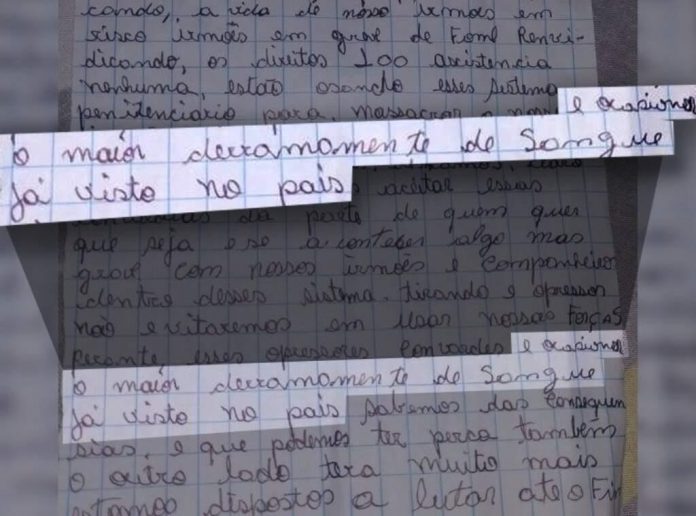 cando, a vida de nosso irmãos em
risco irmões em grave de Fome Renvi-
dicando, os direitos 100 asistencia
nenhuma, estão osando esses sistema
penidenciario para, massacrar e ocasiones
o maiór derramamente de Songue
já visto no pais
aceitar essas
da parte de quem quer
que seja e se a conteser algo mas
grave com nossos irmões e companheiros
dentro desses sistema. tirando e opressor
não evitaremos em usar nossas Forças
Perante esses opressores Convardes e ocasiones
o maiór derramamente de Songue
já visto no pais sabemos das Consequen
sias, e que podemos ter perca também
o outro lado tera muito mais
estamos dispostos a lutar ate o Fim